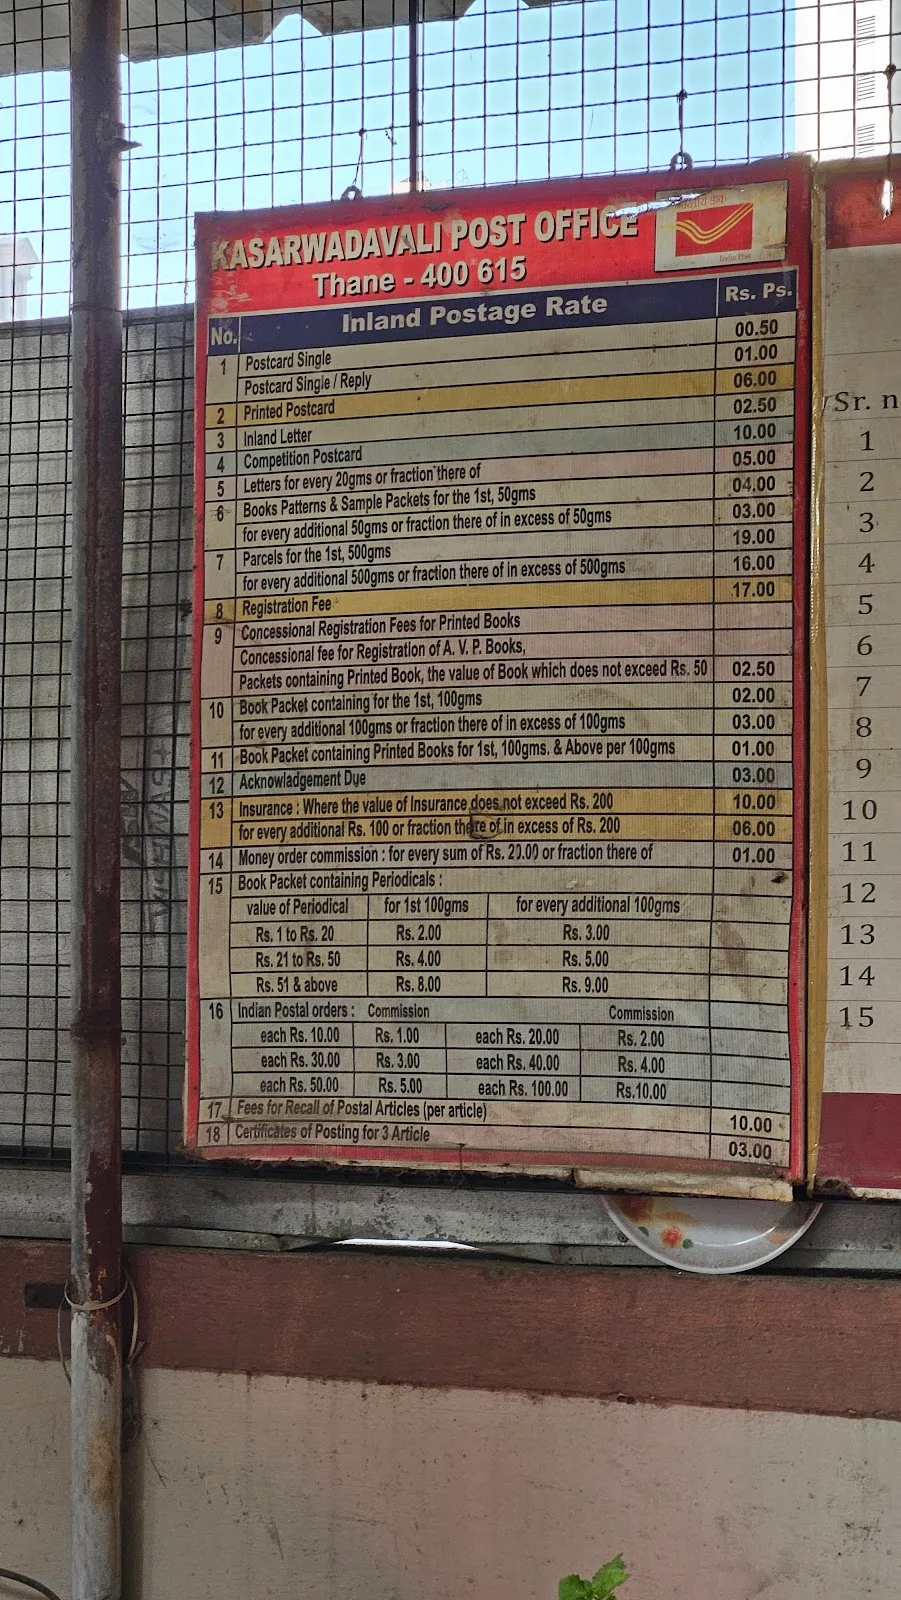 KASARWADAVALI POST OFFICE
Thane - 400 615
India Post
No. Inland Postage Rate Rs. Ps.
1 Postcard Single 00.50
Postcard Single / Reply 01.00
2 Printed Postcard 06.00
3 Inland Letter 02.50
4 Competition Postcard 10.00
5 Letters for every 20gms or fraction there of 05.00
6 Books Patterns & Sample Packets for the 1st, 50gms 04.00
for every additional 50gms or fraction there of in excess of 50gms 03.00
7 Parcels for the 1st, 500gms 19.00
for every additional 500gms or fraction there of in excess of 500gms 16.00
8 Registration Fee 17.00
9 Concessional Registration Fees for Printed Books
Concessional fee for Registration of A. V. P. Books,
Packets containing Printed Book, the value of Book which does not exceed Rs. 50 02.50
10 Book Packet containing for the 1st, 100gms 02.00
for every additional 100gms or fraction there of in excess of 100gms 03.00
11 Book Packet containing Printed Books for 1st, 100gms. & Above per 100gms 01.00
12 Acknowladgement Due 03.00
13 Insurance : Where the value of Insurance does not exceed Rs. 200 10.00
for every additional Rs. 100 or fraction there of in excess of Rs. 200 06.00
14 Money order commission : for every sum of Rs. 20.00 or fraction there of 01.00
15 Book Packet containing Periodicals :
value of Periodical for 1st 100gms for every additional 100gms
Rs. 1 to Rs. 20 Rs. 2.00 Rs. 3.00
Rs. 21 to Rs. 50 Rs. 4.00 Rs. 5.00
Rs. 51 & above Rs. 8.00 Rs. 9.00
16 Indian Postal orders : Commission Commission
each Rs. 10.00 Rs. 1.00 each Rs. 20.00 Rs. 2.00
each Rs. 30.00 Rs. 3.00 each Rs. 40.00 Rs. 4.00
each Rs. 50.00 Rs. 5.00 each Rs. 100.00 Rs.10.00
17 Fees for Recall of Postal Articles (per article) 10.00
18 Certificates of Posting for 3 Article 03.00
Sr. n
1
2
3
4
5
6
7
8
9
10
11
12
13
14
15